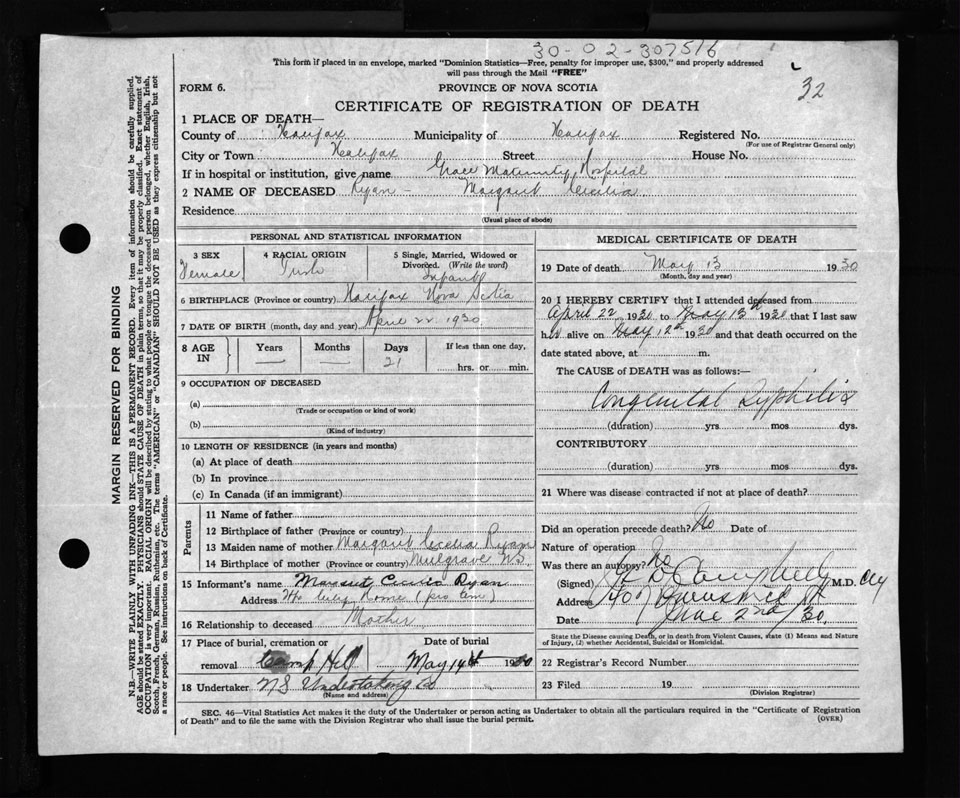 30-02-307516
This form if placed in an envelope, marked "Dominion Statistics—Free, penalty for improper use, $300," and properly addressed
will pass through the Mail "FREE"
32
FORM 6. PROVINCE OF NOVA SCOTIA
CERTIFICATE OF REGISTRATION OF DEATH
1 PLACE OF DEATH—
County of Halifax Municipality of Halifax Registered No.
(For use of Registrar General only)
City or Town Halifax Street House No.
If in hospital or institution, give name Grace Maternity Hospital
2 NAME OF DECEASED Ryan — Margaret Cecelia
Residence
(Usual place of abode)
PERSONAL AND STATISTICAL INFORMATION
3 SEX 4 RACIAL ORIGIN 5 Single, Married, Widowed or
Divorced. (Write the word)
Female Irish Infant
6 BIRTHPLACE (Province or country) Halifax Nova Scotia
7 DATE OF BIRTH (month, day and year) April 22 1930
8 AGE IN Years Months Days If less than one day,
— — 21 hrs. or min.
9 OCCUPATION OF DECEASED
(a)
(Trade or occupation or kind of work)
(b)
(Kind of industry)
10 LENGTH OF RESIDENCE (in years and months)
(a) At place of death
(b) In province
(c) In Canada (if an immigrant)
Parents
11 Name of father
12 Birthplace of father (Province or country)
13 Maiden name of mother Margaret Cecelia Ryan
14 Birthplace of mother (Province or country) Mulgrave N.S.
15 Informant's name Ryan
Address City Home (pro tem)
16 Relationship to deceased Mother
17 Place of burial, cremation or Date of burial
removal Camp Hill May 14th 1930
18 Undertaker NS Undertaking Co
(Name and address)
MEDICAL CERTIFICATE OF DEATH
19 Date of death May 13 1930
(Month, day and year)
20 I HEREBY CERTIFY that I attended deceased from
April 22 1930 to May 13th 1930 that I last saw
h alive on May 12th 1930 and that death occurred on the
date stated above, at m.
The CAUSE of DEATH was as follows:—
Congenital Syphilis
(duration) yrs mos dys.
CONTRIBUTORY
(duration) yrs. mos dys.
21 Where was disease contracted if not at place of death?
Did an operation precede death? No Date of
Nature of operation
Was there an autopsy? No
(Signed) Campbell M.D.
Address 407 Brunswick St
Date June 2nd/30.
State the Disease causing Death, or in death from Violent Causes, state (1) Means and Nature
of Injury, (2) whether Accidental, Suicidal or Homicidal.
22 Registrar's Record Number
23 Filed 19
(Division Registrar)
SEC. 46—Vital Statistics Act makes it the duty of the Undertaker or person acting as Undertaker to obtain all the particulars required in the "Certificate of Registration
of Death" and to file the same with the Division Registrar who shall issue the burial permit. (OVER)
MARGIN RESERVED FOR BINDING
N.B.—WRITE PLAINLY WITH UNFADING INK—THIS IS A PERMANENT RECORD. Every item of information should be carefully supplied.
AGE should be stated EXACTLY. PHYSICIANS should STATE CAUSE OF DEATH in plain terms, so that it may be properly classified. Exact statement of
OCCUPATION is very important. RACIAL ORIGIN will be described by stating to what people or tongue the deceased person belonged, whether English, Irish,
Scotch, French, German, Russian, Ruthenian, etc. The terms "AMERICAN" or "CANADIAN" SHOULD NOT BE USED as they express citizenship but not
a race or people. See instructions on back of Certificate.